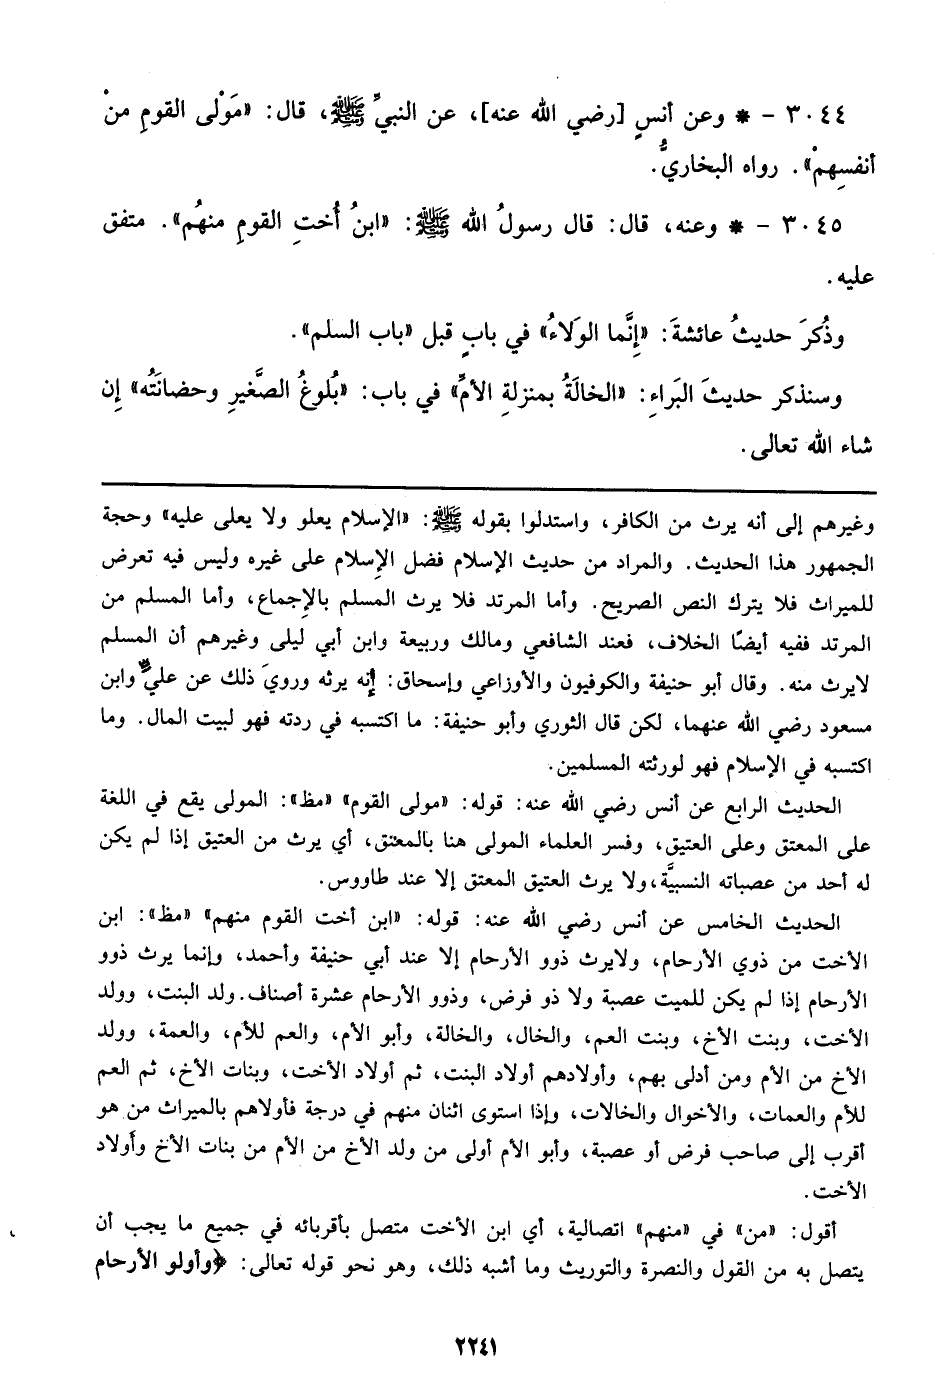 ٣٠٤٤ - * وعن أنسٍ [رضي الله عنه]، عن النبيِّ ﷺ، قال: «مَوْلى القومِ منْ
أنفسِهمْ». رواه البخاريُّ.
٣٠٤٥ - * وعنه، قال: قال رسولُ الله ﷺ: «ابنُ أُختِ القومِ منهُم». متفق
عليه.
وذُكرَ حديثُ عائشةَ: «إِنَّما الوَلاءُ» في بابٍ قبل «باب السلم».
وسنذكر حديثَ البَراءِ: «الخالَةُ بمنزلةِ الأمِّ» في باب: «بُلوغُ الصَّغيرِ وحضانَتُه» إِن
شاء الله تعالى.
وغيرهم إلى أنه يرث من الكافر، واستدلوا بقوله ﷺ: «الإسلام يعلو ولا يعلى عليه» وحجة
الجمهور هذا الحديث. والمراد من حديث الإسلام فضل الإِسلام على غيره وليس فيه تعرض
للميراث فلا يترك النص الصريح. وأما المرتد فلا يرث المسلم بالإِجماع، وأما المسلم من
المرتد ففيه أيضًا الخلاف، فعند الشافعي ومالك وربيعة وابن أبي ليلى وغيرهم أن المسلم
لايرث منه. وقال أبو حنيفة والكوفيون والأوزاعي وإسحاق: إنه يرثه ورويَ ذلك عن علي وابن
مسعود رضي الله عنهما، لكن قال الثوري وأبو حنيفة: ما اكتسبه في ردته فهو لبيت المال. وما
اكتسبه في الإسلام فهو لورثته المسلمين.
الحديث الرابع عن أنس رضي الله عنه: قوله: «مولى القوم» «مظ»: المولى يقع في اللغة
على المعتق وعلى العتيق، وفسر العلماء المولى هنا بالمعتق، أي يرث من العتيق إذا لم يكن
له أحد من عصباته النسبيَّة، ولا يرث العتيق المعتق إلا عند طاووس.
الحديث الخامس عن أنس رضي الله عنه: قوله: «ابن أخت القوم منهم» «مظ»: ابن
الأخت من ذوي الأرحام، ولايرث ذوو الأرحام إلا عند أبي حنيفة وأحمد، وإنما يرث ذوو
الأرحام إذا لم يكن للميت عصبة ولا ذو فرض، وذوو الأرحام عشرة أصناف. ولد البنت، وولد
الأخت، وبنت الأخ، وبنت العم، والخال، والخالة، وأبو الأم، والعم للأم، والعمة، وولد
الأخ من الأم ومن أدلى بهم، وأولادهم أولاد البنت، ثم أولاد الأخت، وبنات الأخ، ثم العم
للأم والعمات، والأخوال والخالات، وإذا استوى اثنان منهم في درجة فأولاهم بالميراث من هو
أقرب إلى صاحب فرض أو عصبة، وأبو الأم أولى من ولد الأخ من الأم من بنات الأخ وأولاد
الأخت.
أقول: «من» في «منهم» اتصالية، أي ابن الأخت متصل بأقربائه في جميع ما يجب أن
يتصل به من القول والنصرة والتوريث وما أشبه ذلك، وهو نحو قوله تعالى: ﴿وأولو الأرحام
٢٢٤١